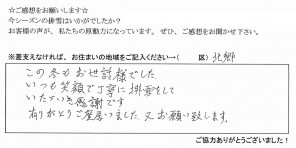 ☆ご感想をお願いします☆
今シーズンの排雪はいかがでしたか？
お客様の声が、私たちの原動力になっています。ぜひ、ご感想をお聞かせ下さい。
※差支えなければ、お住まいの地域をご記入ください→（　　　区）北郷
この冬もお世話様でした
いつも笑顔で丁寧に排雪をして
いただいき感謝です
有りがとうご座居いました又お願い致します。
ご協力ありがとうございました！